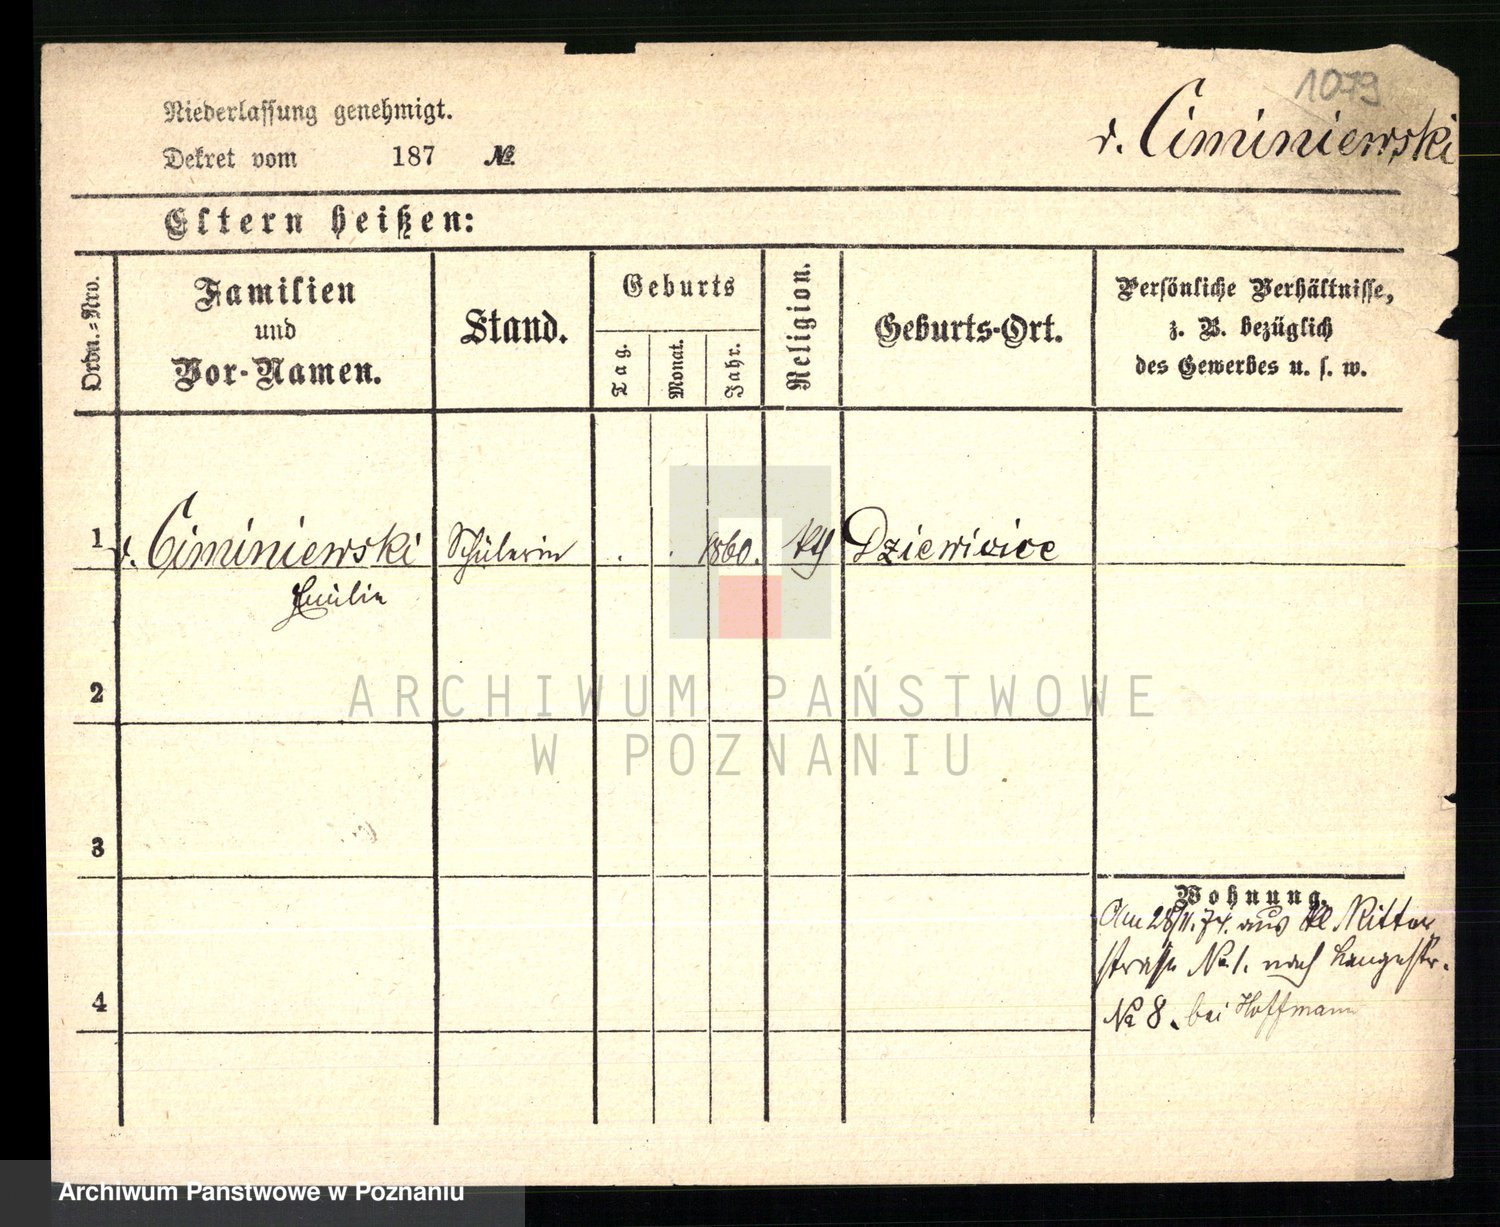 1079
Niederlassung genehmigt.
v. Ciminiewski
Dekret vom 187 №
Eltern heißen:
Ordn.=Nro.
Familien
und
Vor-Namen.
Stand.
Geburts
Tag.
Monat.
Jahr.
Religion.
Geburts-Ort.
Persönliche Verhältnisse,
z. B. bezüglich
des Gewerbes u. s. w.
1 v. Ciminiewski Schülerin . . 1860. kth Dziewivice
Emilie
2
ARCHIWUM PAŃSTWOWE
W POZNANIU
3
Wohnung.
Am 28/11. 74. aus kl Ritter
straße No 1. nach Langestr.
4
No 8. bei Hoffmann
Archiwum Panstwowe w Poznaniu